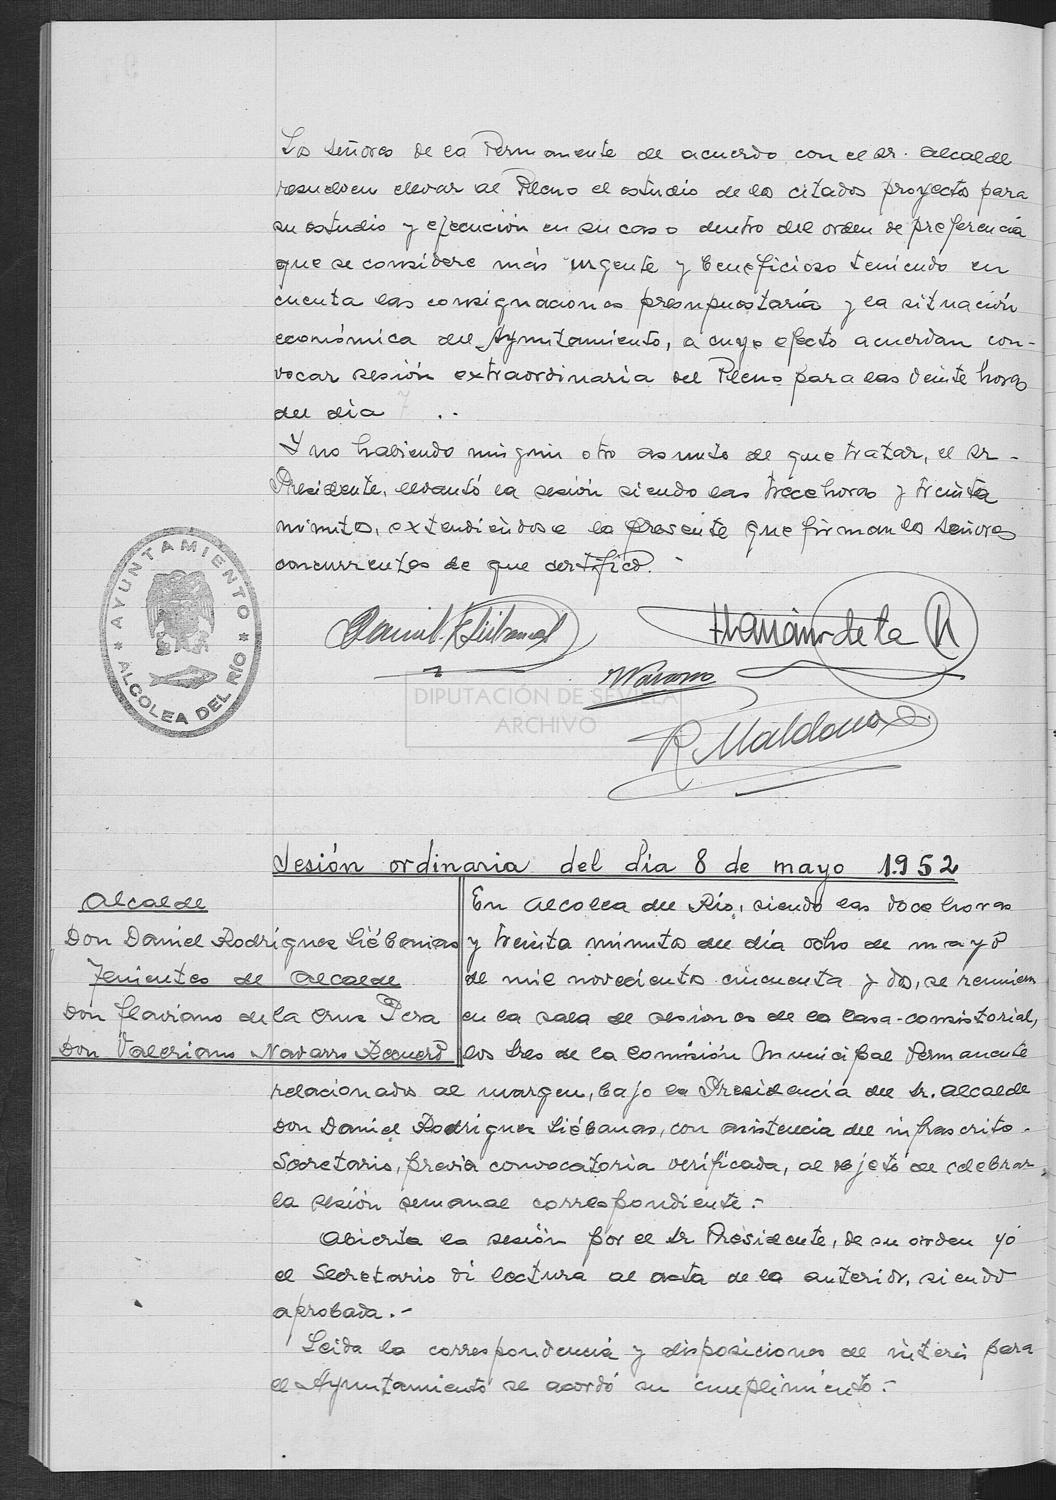 Los señores de la Permanente de acuerdo con el Sr. Alcalde
resuelven elevar al Pleno el estudio de los citados proyectos para
su estudio y ejecución en su caso dentro del orden de preferencia
que se considere más urgente y beneficioso teniendo en
cuenta las consignaciones presupuestaria y la situación
económica del Ayuntamiento, a cuyo efecto acuerdan con-
vocar sesión extraordinaria del Pleno para las veinte horas
del día 7 ..
Y no habiendo ningún otro asunto de que tratar, el Sr.
Presidente, levantó la sesión siendo las trece horas y treinta
minutos, extendiéndose la presente que firman los señores
concurrentes de que certifico.-
AYUNTAMIENTO
* ALCOLEA DEL RÍO *
Daniel R Liébanas
Flaviano de la
Navarro
R. Maldonado
DIPUTACIÓN DE SEVILLA
ARCHIVO
Sesión ordinaria del día 8 de mayo 1.952
Alcalde
Don Daniel Rodríguez Liébanas
Tenientes de Alcalde
Don Flaviano de la Cruz Pera
Don Valeriano Navarro
En Alcolea del Río, siendo las doce horas
y treinta minutos del día ocho de mayo
de mil novecientos cincuenta y dos, se reunieron
en la sala de sesiones de la Casa-consistorial,
los Sres de la Comisión Municipal Permanente
relacionados al margen, bajo la Presidencia del Sr. Alcalde
Don Daniel Rodríguez Liébanas, con asistencia del infrascrito.
Secretario, previa convocatoria verificada, al objeto de celebrar
la sesión semanal correspondiente.-
Abierta la sesión por el Sr Presidente, de su orden yó
el Secretario dí lectura al acta de la anterior, siendo
aprobada.-
Leida la correspondencia y disposiciones de interés para
el Ayuntamiento se acordó su cumplimiento.-